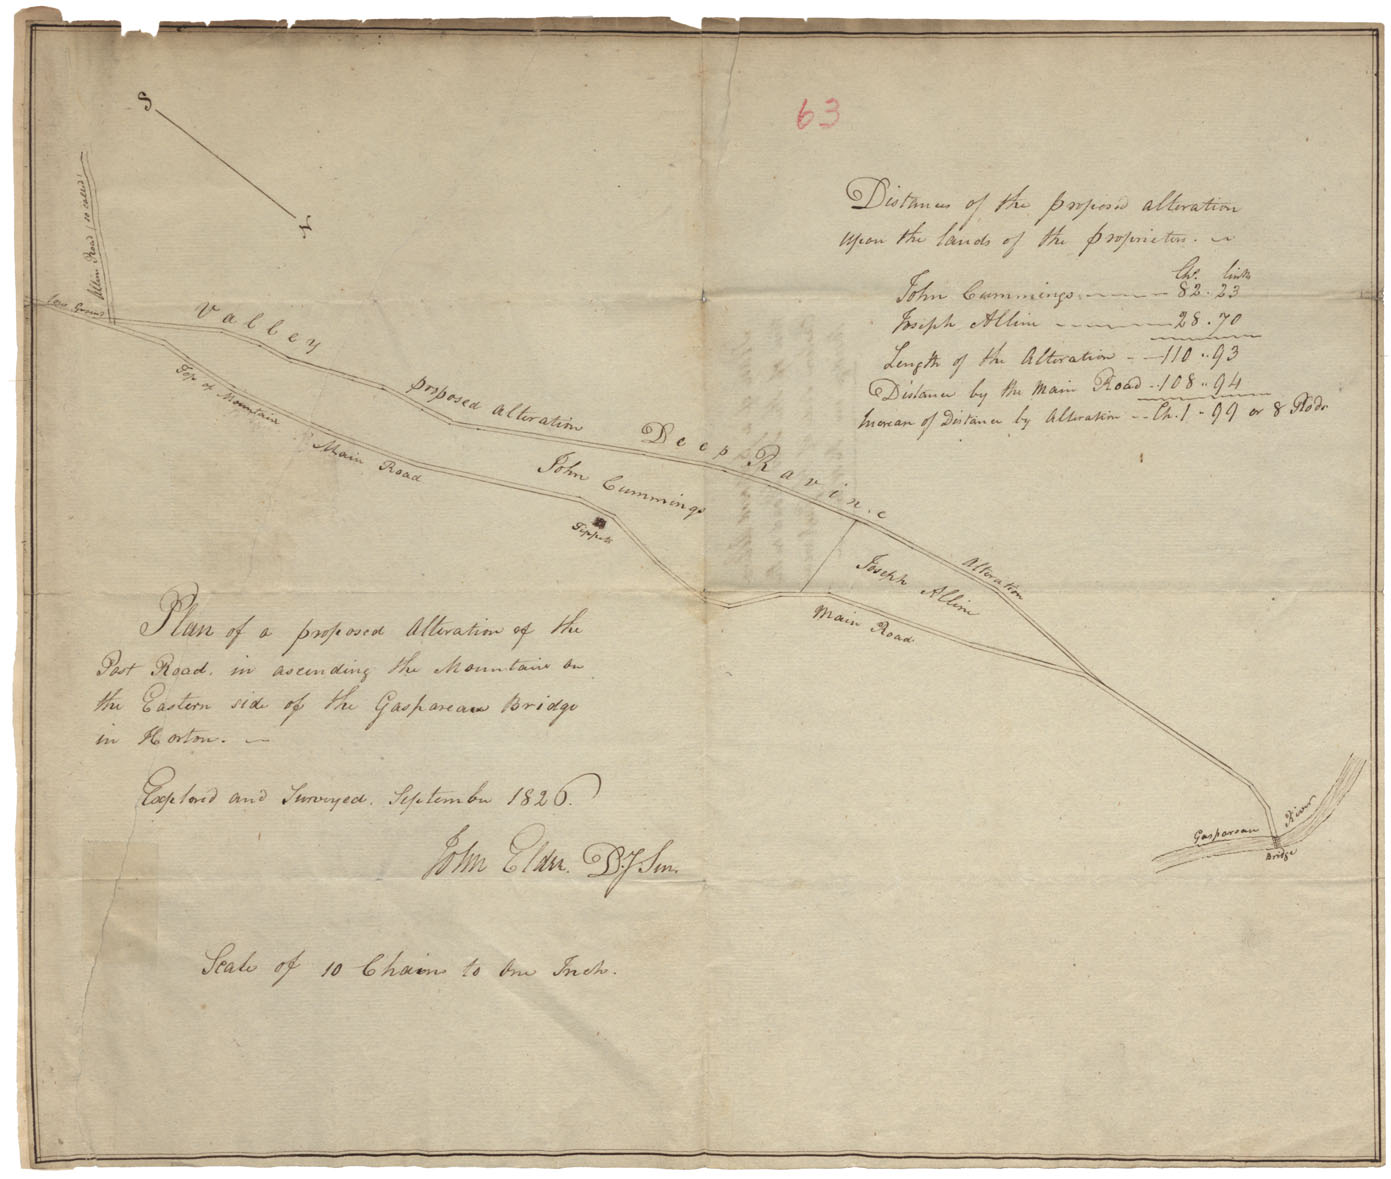 63
S
N
Distances of the proposed alteration
upon the lands of the proprietors.
Chs. links
John Cummings 82 . 23
Joseph Alline 28 . 70
Length of the Alteration 110 .. 93
Distance by the Main Road 108 .. 94
Increase of Distance by Alteration Ch. 1 .. 99 or 8 Rods
Allen Road so called
Low Ground
Valley
proposed alteration
Deep Ravine
Top of Mountain
Main Road
John Cummings
Tippets
Joseph Alline
Alteration
Main Road
Gaspareau River
Bridge
Plan of a proposed Alteration of the
Post Road. in ascending the Mountain on
the Eastern side of the Gaspareau Bridge
in Horton.
Explored and Surveyed. September 1826.
John Elder. D. Sur.
Scale of 10 Chains to One Inch.